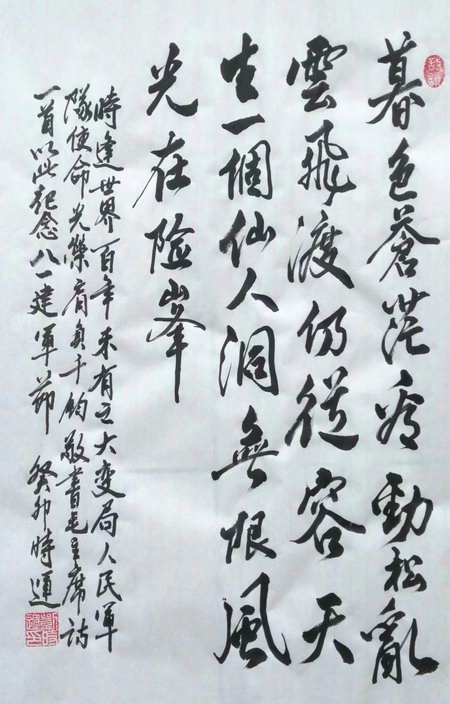 暮色蒼茫看勁松亂
雲飛渡仍從容天
生一個仙人洞無限風
光在险峯
時逢世界百年未有之大变局人民軍
隊使命光榮肩負千鈞敬書毛主席詩
一首以此紀念八一建軍節 癸卯時運